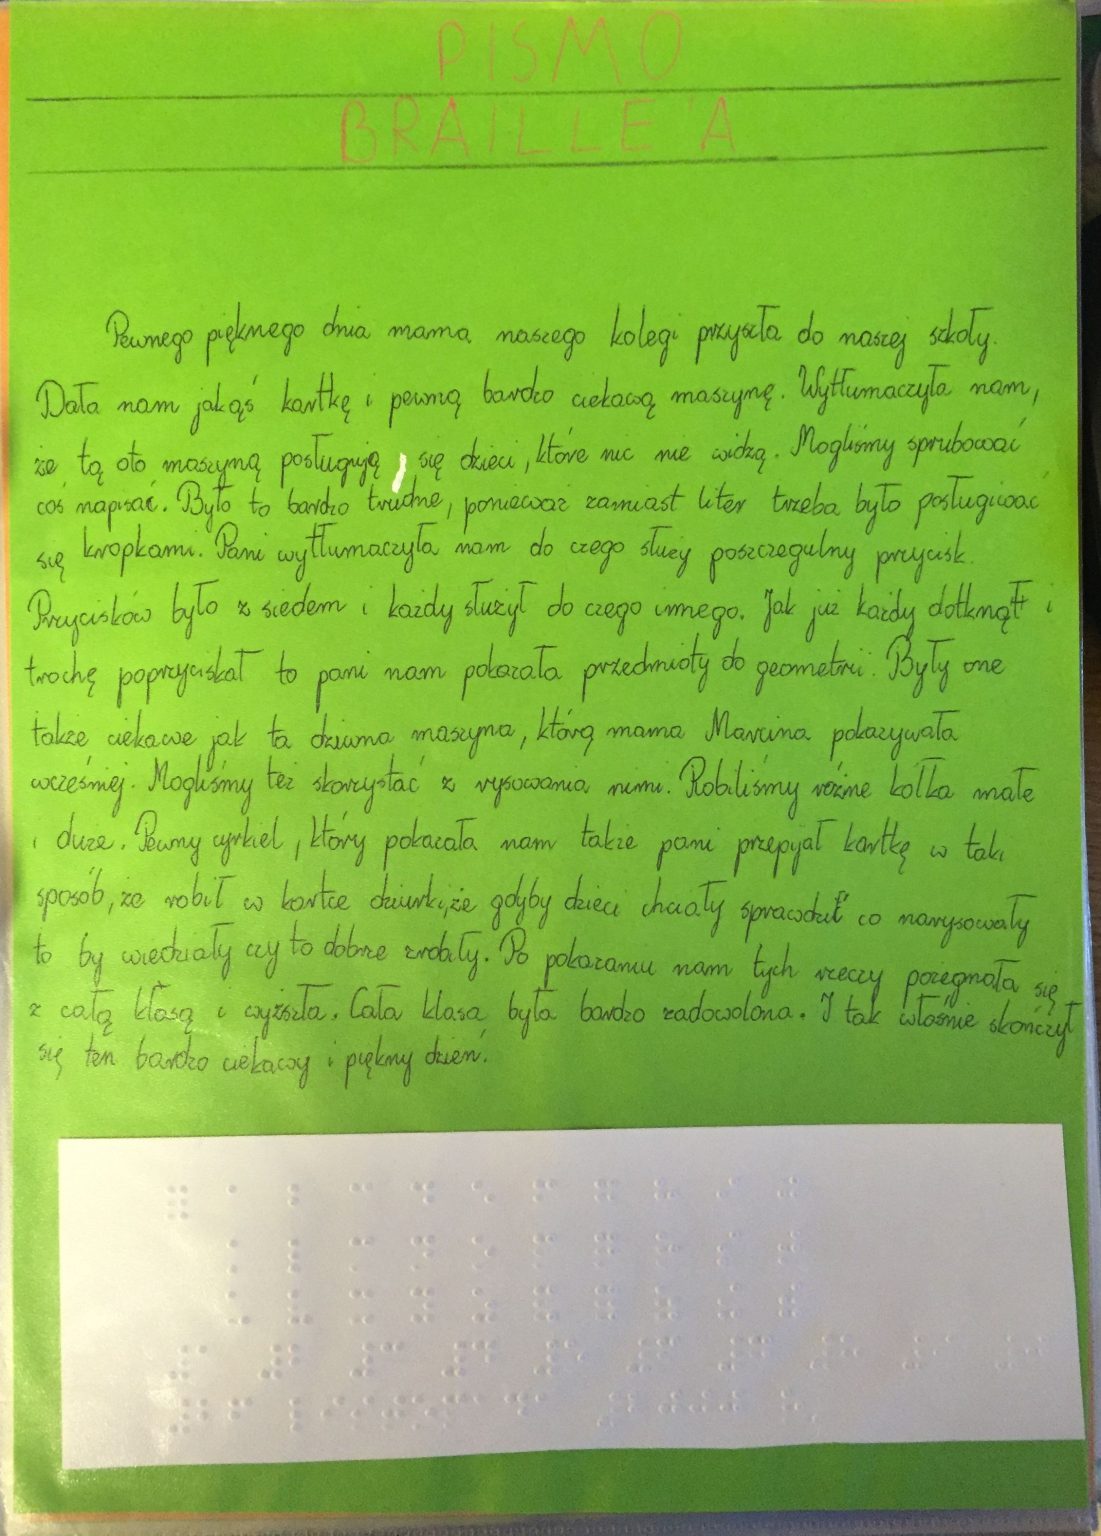 PISMO
BRAILLE'A
Pewnego pięknego dnia mama naszego kolegi przyszła do naszej szkoły.
Dała nam jakąś kartkę i pewną bardzo ciekawą maszynę. Wytłumaczyła nam,
że tą oto maszyną posługują się dzieci, które nic nie widzą. Mogliśmy sprubować
coś napisać. Było to bardzo trudne, ponieważ zamiast liter trzeba było posługiwać
się kropkami. Pani wytłumaczyła nam do czego służy poszczegulny przycisk.
Przycisków było z siedem i każdy służył do czego innego. Jak już każdy dotknął i
trochę poprzyciskał to pani nam pokazała przedmioty do geometrii. Były one
także ciekawe jak ta dziwna maszyna, którą mama Marcina pokazywała
wcześniej. Mogliśmy też skorzystać z rysowania nimi. Robiliśmy różne kółka małe
i duże. Pewny cyrkiel, który pokazała nam także pani przepijał kartkę w taki
sposób, że robił w kartce dziurki, że gdyby dzieci chciały sprawdzić co narysowały
to by wiedziały czy to dobrze zrobiły. Po pokazaniu nam tych rzeczy pożegnała się
z całą klasą i wyższła. Cała klasa była bardzo zadowolona. I tak właśnie skończył
się ten bardzo ciekawy i piękny dzień.